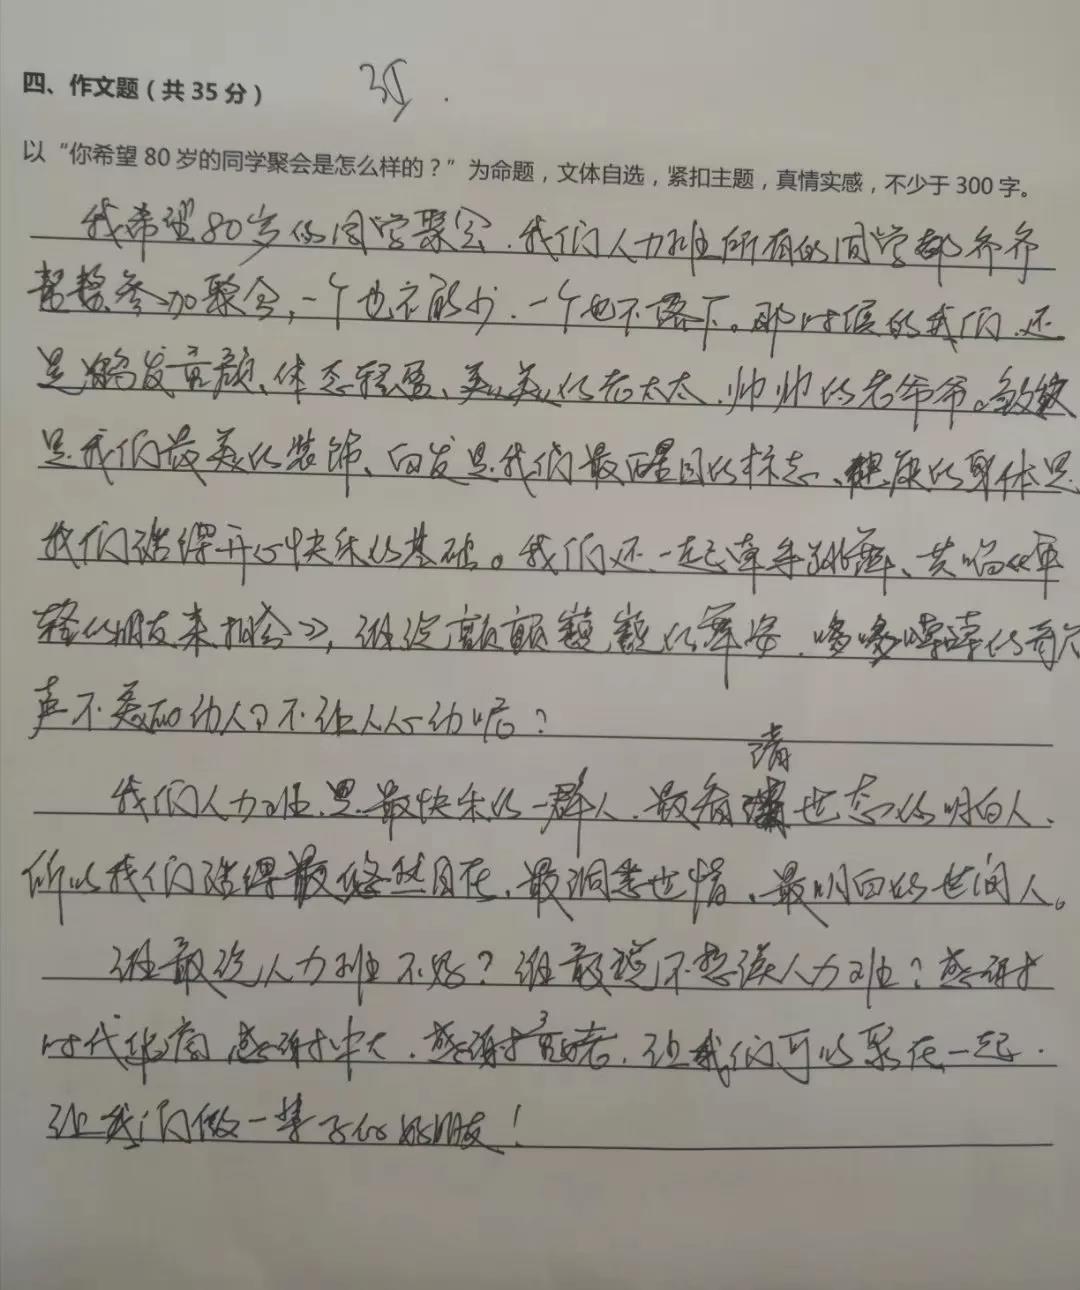 四、作文题（共 35 分） 35
以“你希望 80 岁的同学聚会是怎么样的？”为命题，文体自选，紧扣主题，真情实感，不少于 300 字。
我希望80岁的同学聚会，我们人力班所有的同学都齐齐
整整参加聚会，一个也不能少，一个也不落下。那时候的我们，还
是鹤发童颜、体态轻盈、美美的老太太，帅帅的老爷爷。皱纹
是我们最美的装饰、白发是我们最醒目的标志、健康的身体是
我们活得开心快乐的基础。我们还一起牵手跳舞、共唱《年
轻的朋友来相会》，谁说颤颤巍巍的舞姿，哆哆嗦嗦的
声不美而动人？不让人心动呢？
我们人力班是最快乐的一群人，最看清世态的明白人，
所以我们活得最悠然自在，最洞悉世情、最明白的世间人。
谁敢说人力班不好？谁敢说不想读人力班？感谢
时代华商 感谢中大，感谢，让我们可以聚在一起，
让我们做一辈子的好朋友！